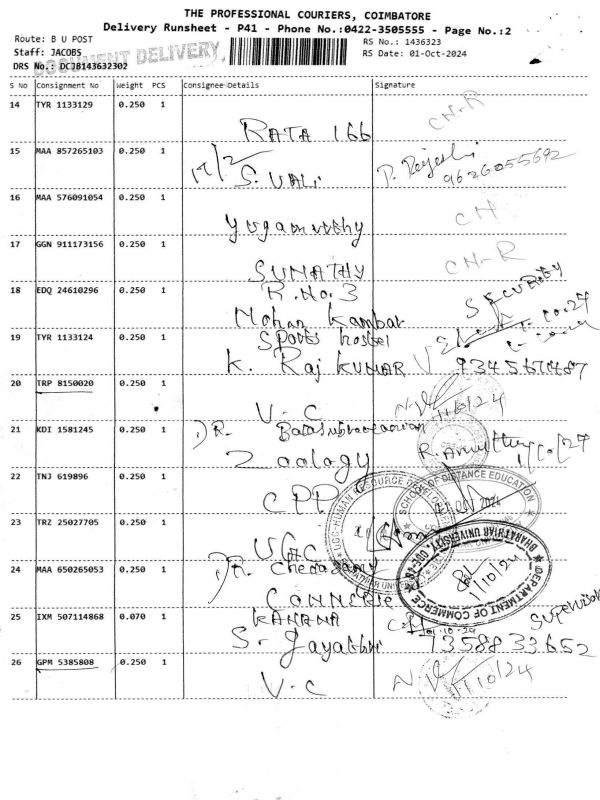 THE PROFESSIONAL COURIERS, COIMBATORE
Delivery Runsheet - P41 - Phone No.:0422-3505555 - Page No.:2
Route: B U POST
RS No.: 1436323
Staff: JACOBS
RS Date: 01-Oct-2024
DOCUMENT DELIVERY
DRS No.: DCJ8143632302
S No Consignment No Weight PCS Consignee Details Signature
14 TYR 1133129 0.250 1 CH-R
RAJA 166
15 MAA 857265103 0.250 1
S. VALI 9626055692
16 MAA 576091054 0.250 1 CH
Yugamurthy
17 GGN 911173156 0.250 1 CH-R
SUMATHY
18 EDQ 24610296 0.250 1
R.No. 3 SECURITY
Mohan Kambar
19 TYR 1133124 0.250 1
Sports hostel
K. Raj KUMAR 9345671487
20 TRP 8150020 0.250 1
V.C 1/10/24
21 KDI 1581245 0.250 1
DR. Balasubramanian
Zoology 1/10/24
22 TNJ 619896 0.250 1
CPP
SCHOOL OF DISTANCE EDUCATION
23 TRZ 25027705 0.250 1
UGC
UGC-HUMAN RESOURCE DEVELOPMENT
24 MAA 650265053 0.250 1
BHARATHIAR UNIVERSITY, COE-46
DEPARTMENT OF COMMERCE
1/10/24
Commerce
25 IXM 507114868 0.070 1
KANANA Supervisor
S. 7358833652
26 GPM 5385808 0.250 1
V.C 1/10/24